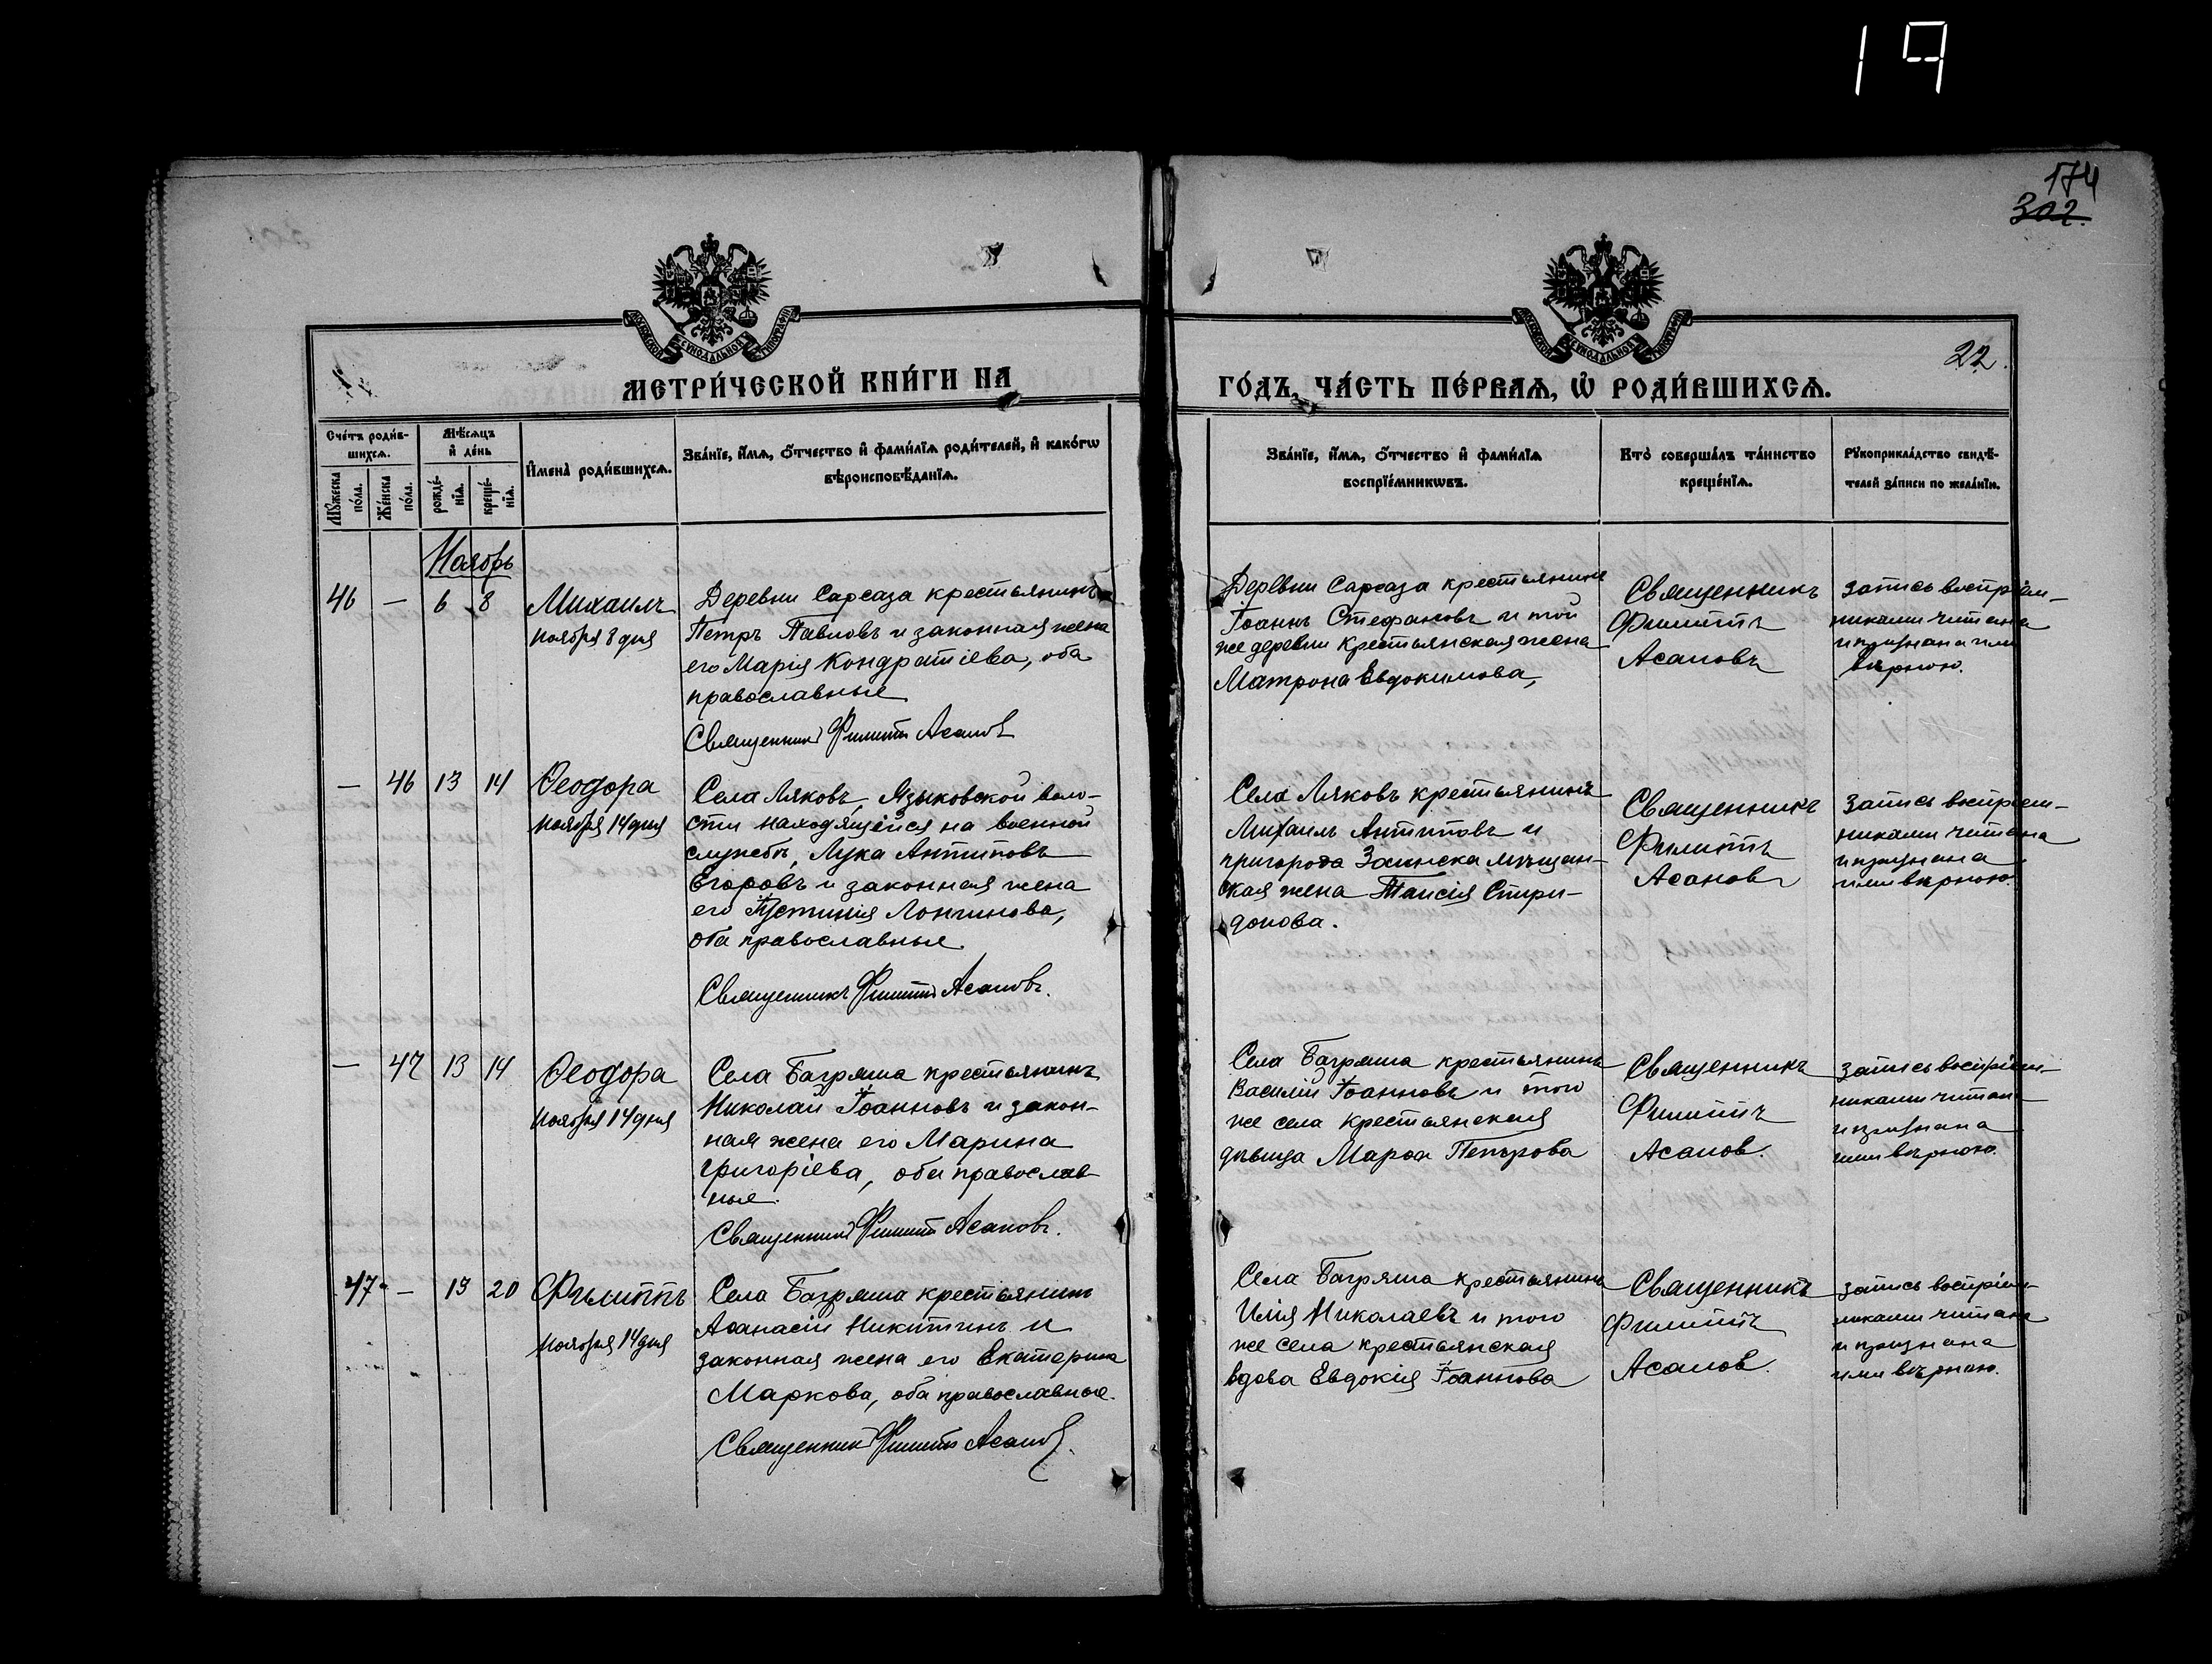 19
174
302.
22.
МЕТРИ́ЧЕСКОЙ КНИ́ГИ НА
ГО́ДЪ, ЧА́СТЬ ПЕ́РВАѦ, Ѽ РОДИ́ВШИХСѦ.
Сче́тъ роди́в-
шихсѧ.
Мꙋ́жеска по́ла.
Же́нска по́ла.
Мѣ́сѧцъ
и҆ де́нь
рожде́-
нїѧ.
креще́-
нїѧ.
И҆мена̀ роди́вшихсѧ.
Зва́нїе, и҆́мѧ, ѻ҆́тчество и҆ фами́лїѧ роди́телей, и҆ како́гѡ
вѣроисповѣ́данїѧ.
Зва́нїе, и҆́мѧ, ѻ҆́тчество и҆ фами́лїѧ
воспрїе́мникѡвъ.
Кто̀ соверша́лъ та́инство
креще́нїѧ.
Рꙋкоприкла́дство свидѣ́-
телей за́писи по жела́нїю.
Ноябрь
46 — 6 8
Михаилъ
ноября 8 дня
Деревни Сарсаза крестьянинъ
Петръ Павловъ и законная жена
его Марія Кондратіева, оба
православные
Священникъ Филиппъ Асановъ
Деревни Сарсаза крестьянинъ
Іоаннъ Стефановъ и той
же деревни крестьянская жена
Матрона Евдокимова,
Священникъ
Филиппъ
Асановъ
Запись воспріем-
никами читана
и признана ими
вѣрною.
— 46 13 14
Ѳеодора
ноября 14 дня
Села Ляковъ, Языковской воло-
сти находящейся на военной
службѣ, Лука Антиповъ
Егоровъ и законная жена
его Іустинія Лонгинова,
оба православные
Священникъ Филиппъ Асановъ.
Села Ляковъ крестьянинъ
Михаилъ Антиповъ и
пригорода Заинска мѣщан-
ская жена Таисія Спири-
донова.
Священникъ
Филиппъ
Асановъ
Запись воспріем-
никами читана
и признана
ими вѣрною.
— 47 13 14
Ѳеодора
ноября 14 дня
Села Багряша крестьянинъ
Николай Іоанновъ и закон-
ная жена его Марина
Григоріева, оба православ-
ные.
Священникъ Филиппъ Асановъ.
Села Багряша крестьянинъ
Василій Іоанновъ и того
же села крестьянская
дѣвица Марѳа Петрова
Священникъ
Филиппъ
Асановъ.
Запись воспріем-
никами читана
и признана
ими вѣрною.
47 — 13 20
Филиппъ
ноября 14 дня
Села Багряша крестьянинъ
Аѳанасій Никитинъ и
законная жена его Екатерина
Маркова, оба православные.
Священникъ Филиппъ Асановъ.
Села Багряша крестьянинъ
Илія Николаевъ и того
же села крестьянская
вдова Евдокія Іоаннова
Священникъ
Филиппъ
Асановъ.
Запись воспріем-
никами читана
и признана
ими вѣрною.